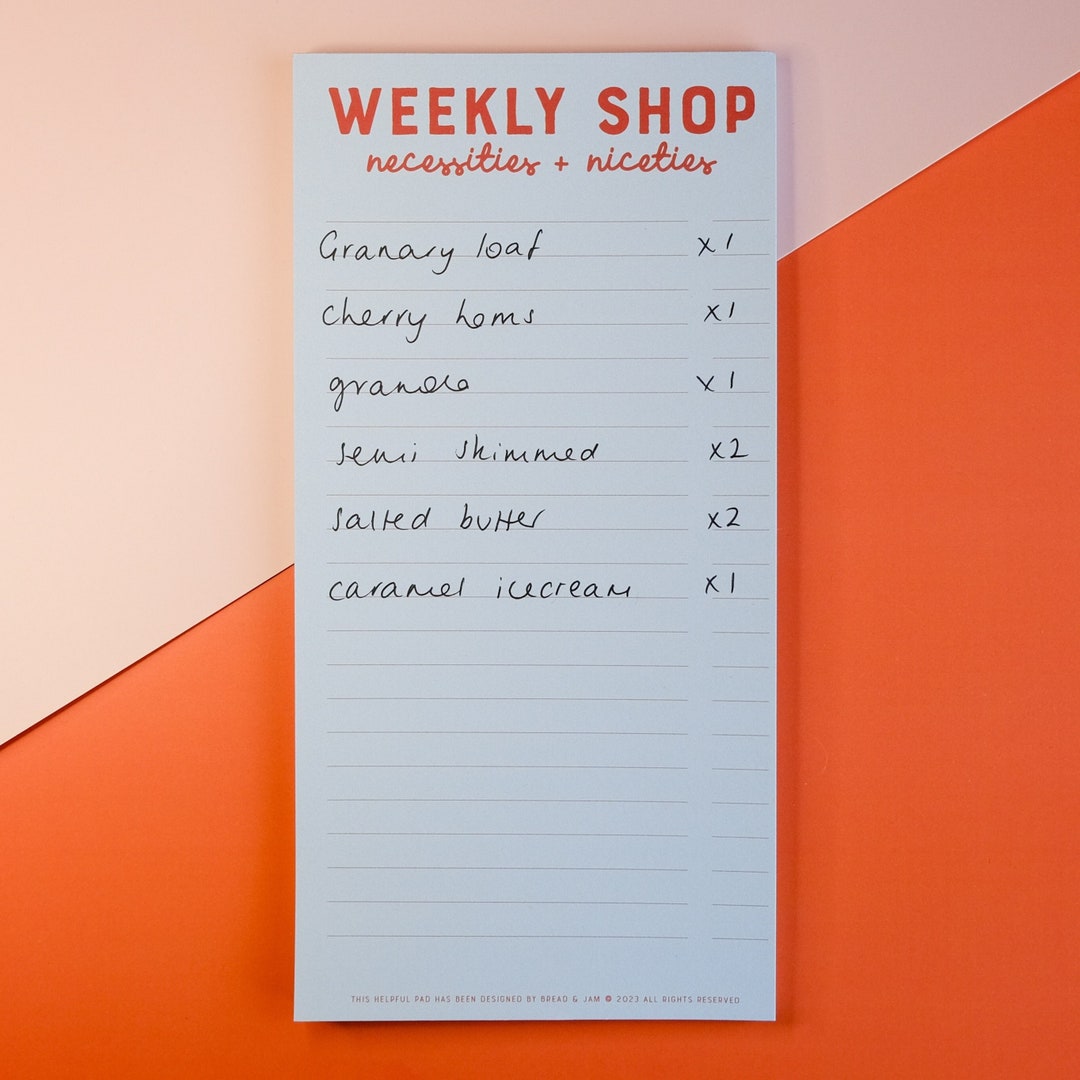 WEEKLY SHOP
necessities + niceties
Granary loaf x1
cherry toms x1
granola x1
semi skimmed x2
salted butter x2
caramel icecream x1
THIS HELPFUL PAD HAS BEEN DESIGNED BY BREAD & JAM © 2023 ALL RIGHTS RESERVED